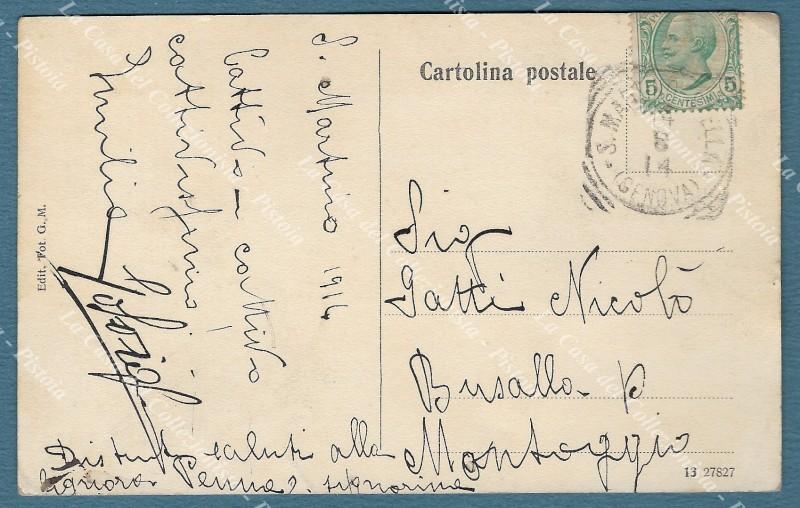 Cartolina postale
5 5
CENTESIMI
S. MA ELLA
(GENOVA)
S. Martino 1914
Cattivo - cattivo
cattivissimo
Emilio
Sig
Gatti Nicolò
Busalla p
Montoggio
Distinti saluti alla
Signora Penna e signorina
Edit. Fot. G. M.
13 27827
La Casa del Collezionista - Pistoia